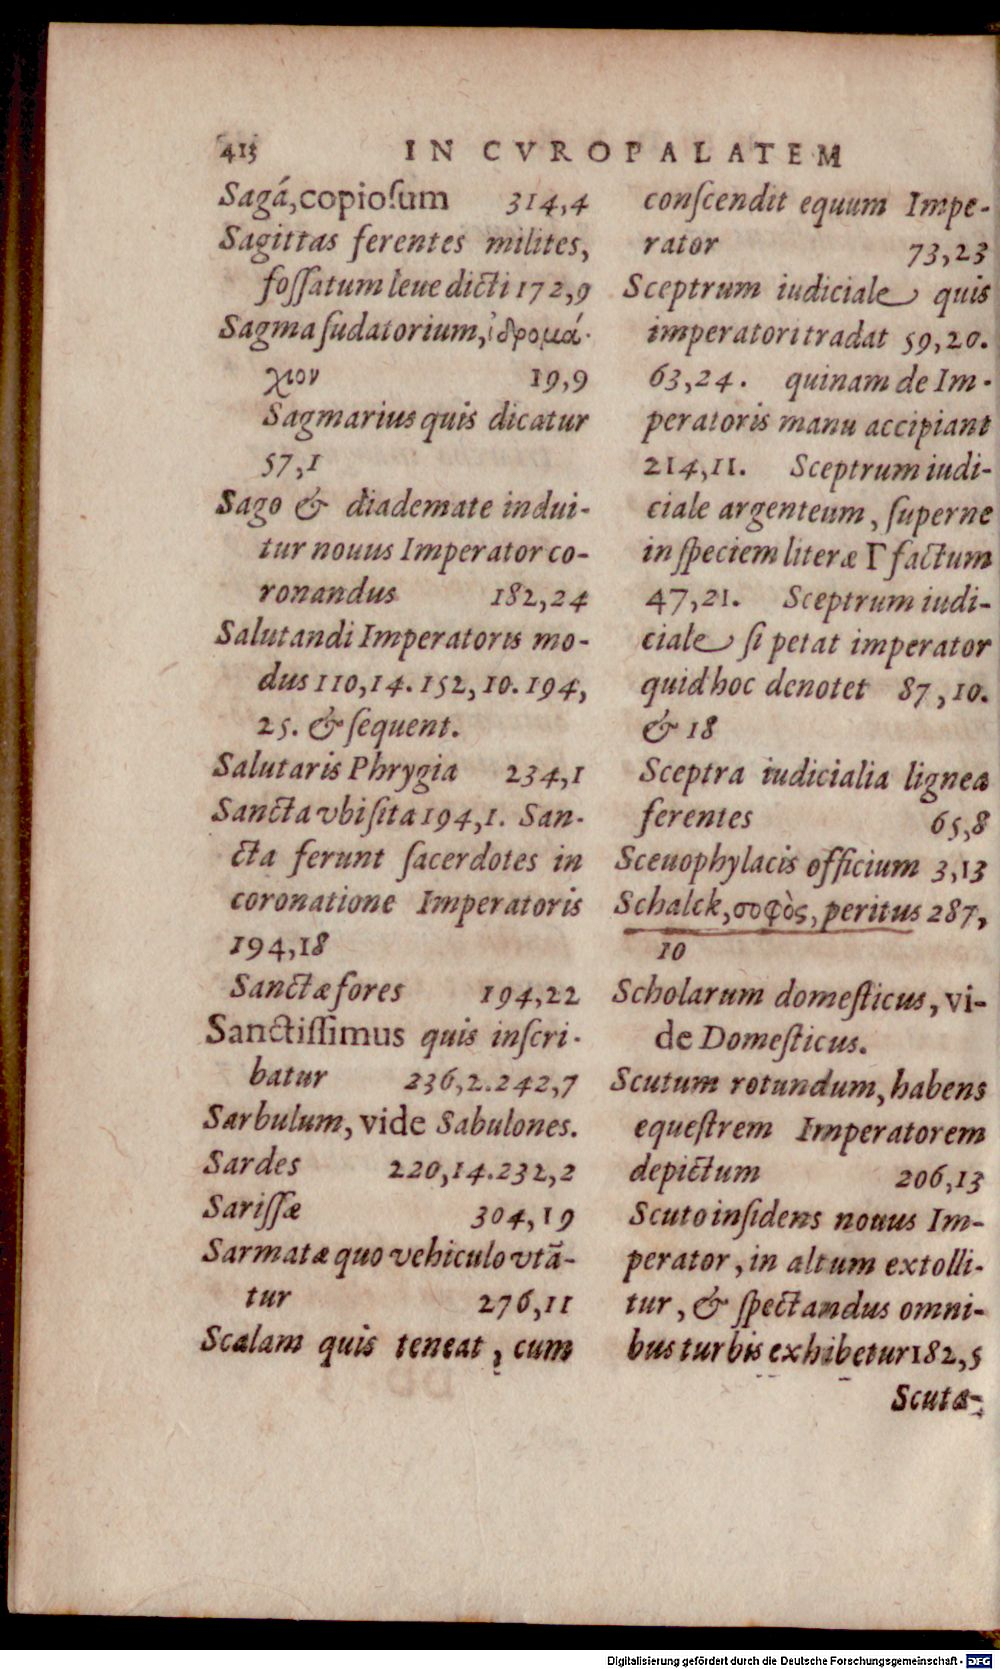 413 IN CVROPALATEM
Sagá, copioſum 314,4
Sagittas ferentes milites,
foſſatum leue dicti 172,9
Sagma ſudatorium, ἱδρομά-
χιον 19,9
Sagmarius quis dicatur
57,1
Sago & diademate indui-
tur nouus Imperator co-
ronandus 182,24
Salutandi Imperatoris mo-
dus 110,14. 152, 10. 194,
25. & ſequent.
Salutaris Phrygia 234,1
Sancta vbi ſita 194,1. San-
cta ferunt ſacerdotes in
coronatione Imperatoris
194,18
Sanctæ fores 194,22
Sanctiſſimus quis inſcri-
batur 236,2.242,7
Sarbulum, vide Sabulones.
Sardes 220,14.232,2
Sariſſæ 304,19
Sarmatæ quo vehiculo vtã-
tur 276,11
Scalam quis teneat, cum
conſcendit equum Impe-
rator 73,23
Sceptrum iudiciale quis
imperatori tradat 59,20.
63,24. quinam de Im-
peratoris manu accipiant
214,11. Sceptrum iudi-
ciale argenteum, ſuperne
in ſpeciem literæ Γ factum
47,21. Sceptrum iudi-
ciale ſi petat imperator
quid hoc denotet 87,10.
& 18
Sceptra iudicialia lignea
ferentes 65,8
Sceuophylacis officium 3,13
Schalck, σοφὸς, peritus 287,
10
Scholarum domeſticus, vi-
de Domeſticus.
Scutum rotundum, habens
equeſtrem Imperatorem
depictum 206,13
Scuto inſidens nouus Im-
perator, in altum extolli-
tur, & ſpectandus omni-
bus turbis exhibetur 182,5
Scuta-
Digitalisierung gefördert durch die Deutsche Forschungsgemeinschaft - DFG